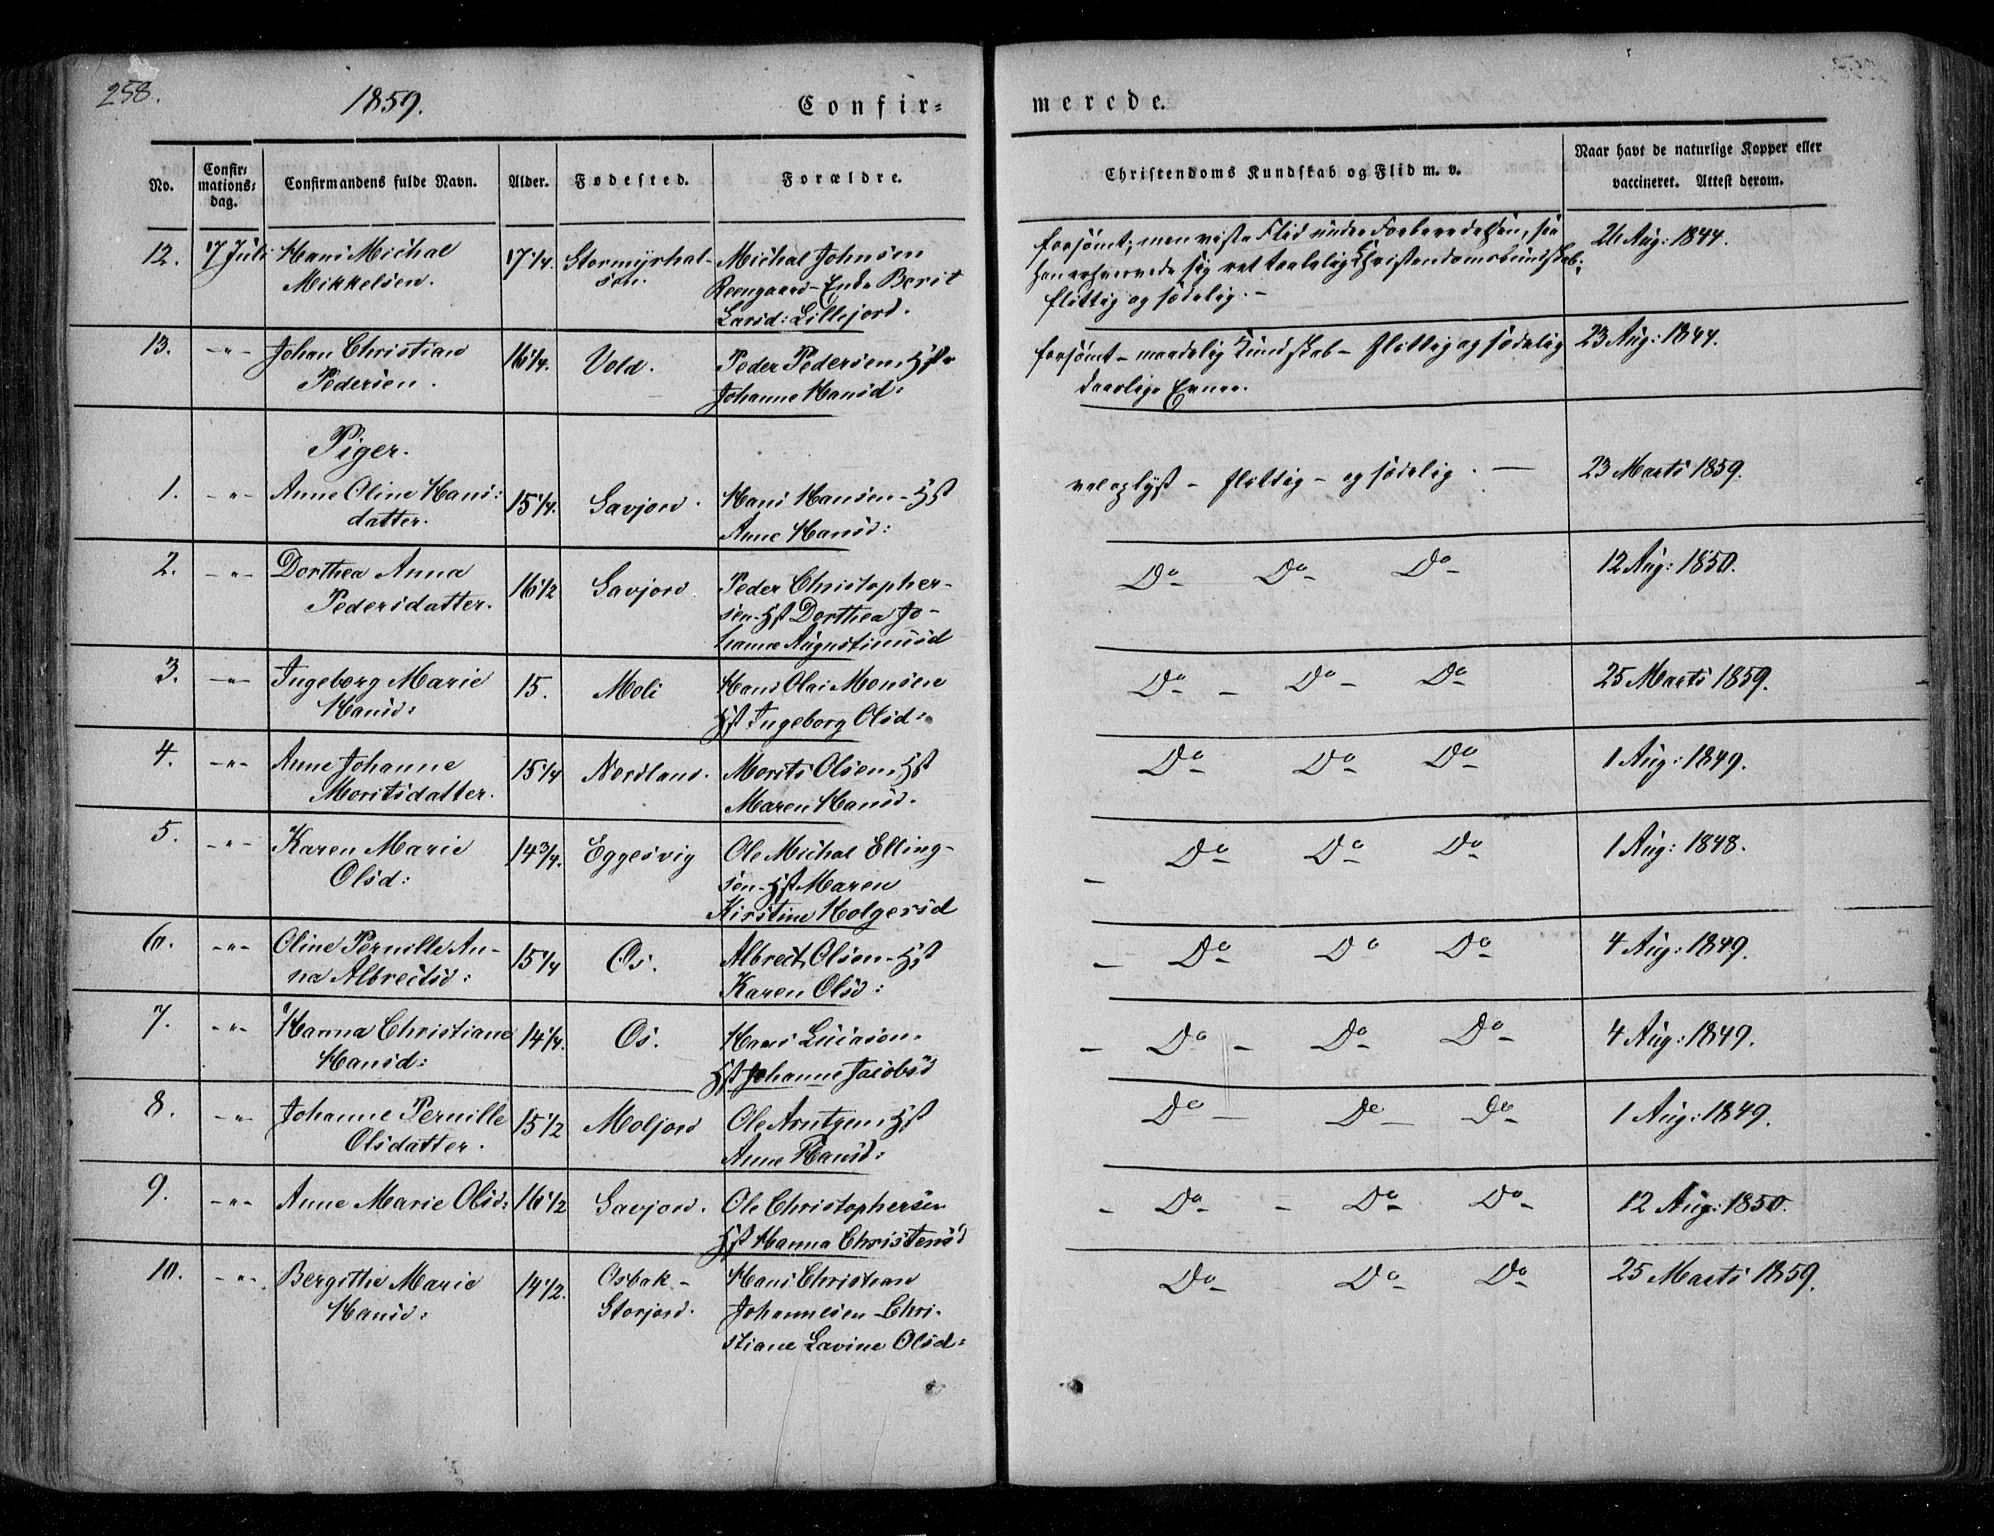 258.
1859.
Confir=
merede.
No.
Confir=
mations=
dag.
Confirmandens fulde Navn.
Alder.
Fødested.
Forældre.
Christendoms Kundskab og Flid m. v.
Naar havt de naturlige Kopper eller
vaccineret. Attest derom.
12. 17 Juli Hans Michal 17 1/4. Stormyrhal- Michal Johnsen forsømt; men viste Flid under Forberedelsen, saa 26 Aug: 1844.
Mikkelsen. sen. Roengaard - Enke Berit han erhvervede sig ret taalelig Christendomskundskab;
Larsd: Lillejord. flittig og sædelig. -
13. -"- Johan Christian 16 1/4. Vold. Peder Pedersen Hst forsømt - maadelig Kundskab - flittig og sædelig 23 Aug: 1844.
Pedersen. Johanne Hansd: daarlige Evner.
Piger.
1. -"- Anne Oline Hans: 15 1/4. Savjord. Hans Hansen - Hst vel oplyst - flittig - og sædelig. - 23 Marts 1859.
datter. Anne Hansd:
2. -"- Dorthea Anna 16 1/2 Savjord Peder Christopher- Do Do Do 12 Aug: 1850.
Pedersdatter. sen - Hst Dorthea Jo-
hanna Augustinusd
3. -"- Ingeborg Marie 15. Moli Hans Olai Monsen Do - Do - Do 25 Marts 1859.
Hansd: Hst Ingeborg Olsd:
4. -"- Anne Johanne 15 1/4 Nordland. Morits Olsen Hst Do Do Do 1 Aug: 1849.
Moritsdatter. Maren Hansd.
5. -"- Karen Marie 14 3/4. Eggesvig Ole Michal Elling- Do Do Do 1 Aug: 1848.
Olsd: sen - Hst Maren
Kirstine Holgersd
6. -"- Oline Pernille An- 15 1/4 Os. Albrect Olsen - Hst - Do Do Do 4 Aug: 1849.
na Albrectsd: Karen Olsd:
7. -"- Hanna Christiane 14 1/4. Os. Hans Lucasen. - Do - Do Do 4 Aug: 1849.
Hansd: Hst Johanne Jacobsd
8. -"- Johanne Pernille 15 1/2 Moljord Ole Arntzen Hst Do - Do - Do 1 Aug: 1849.
Olsdatter. Anne Hansd:
9. -"- Anne Marie Olsd: 16 1/2 Savjord. Ole Christophersen - Do - Do Do 12 Aug: 1850.
Hst Hanna Christensd
10. -"- Bergithe Marie 14 1/2. Osbak - Hans Christian Do Do Do 25 Marts 1859.
Hansd: Storjord. Johannesen - Chri-
stiane Lavine Olsd: